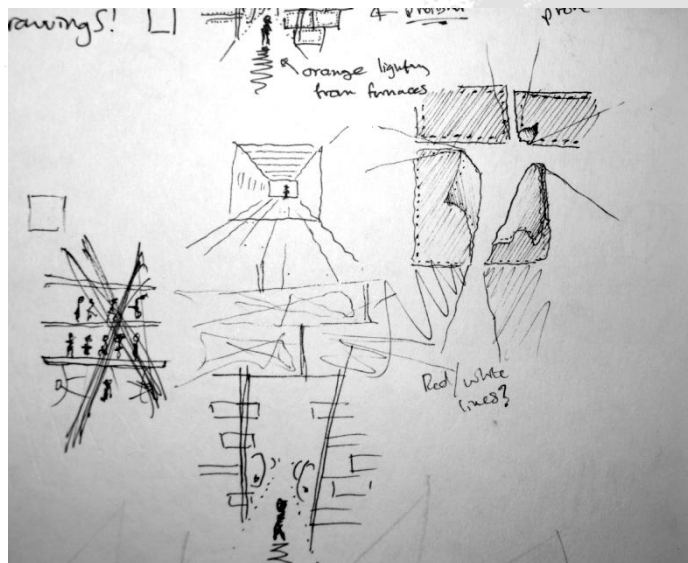 rawings!
orange lighting
from furnaces
Red/white
lines?